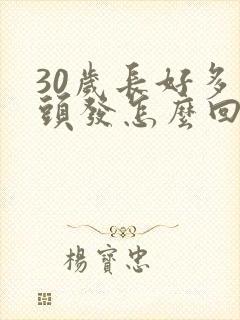 30歲長好多
頭發怎麼回
楊寶忠